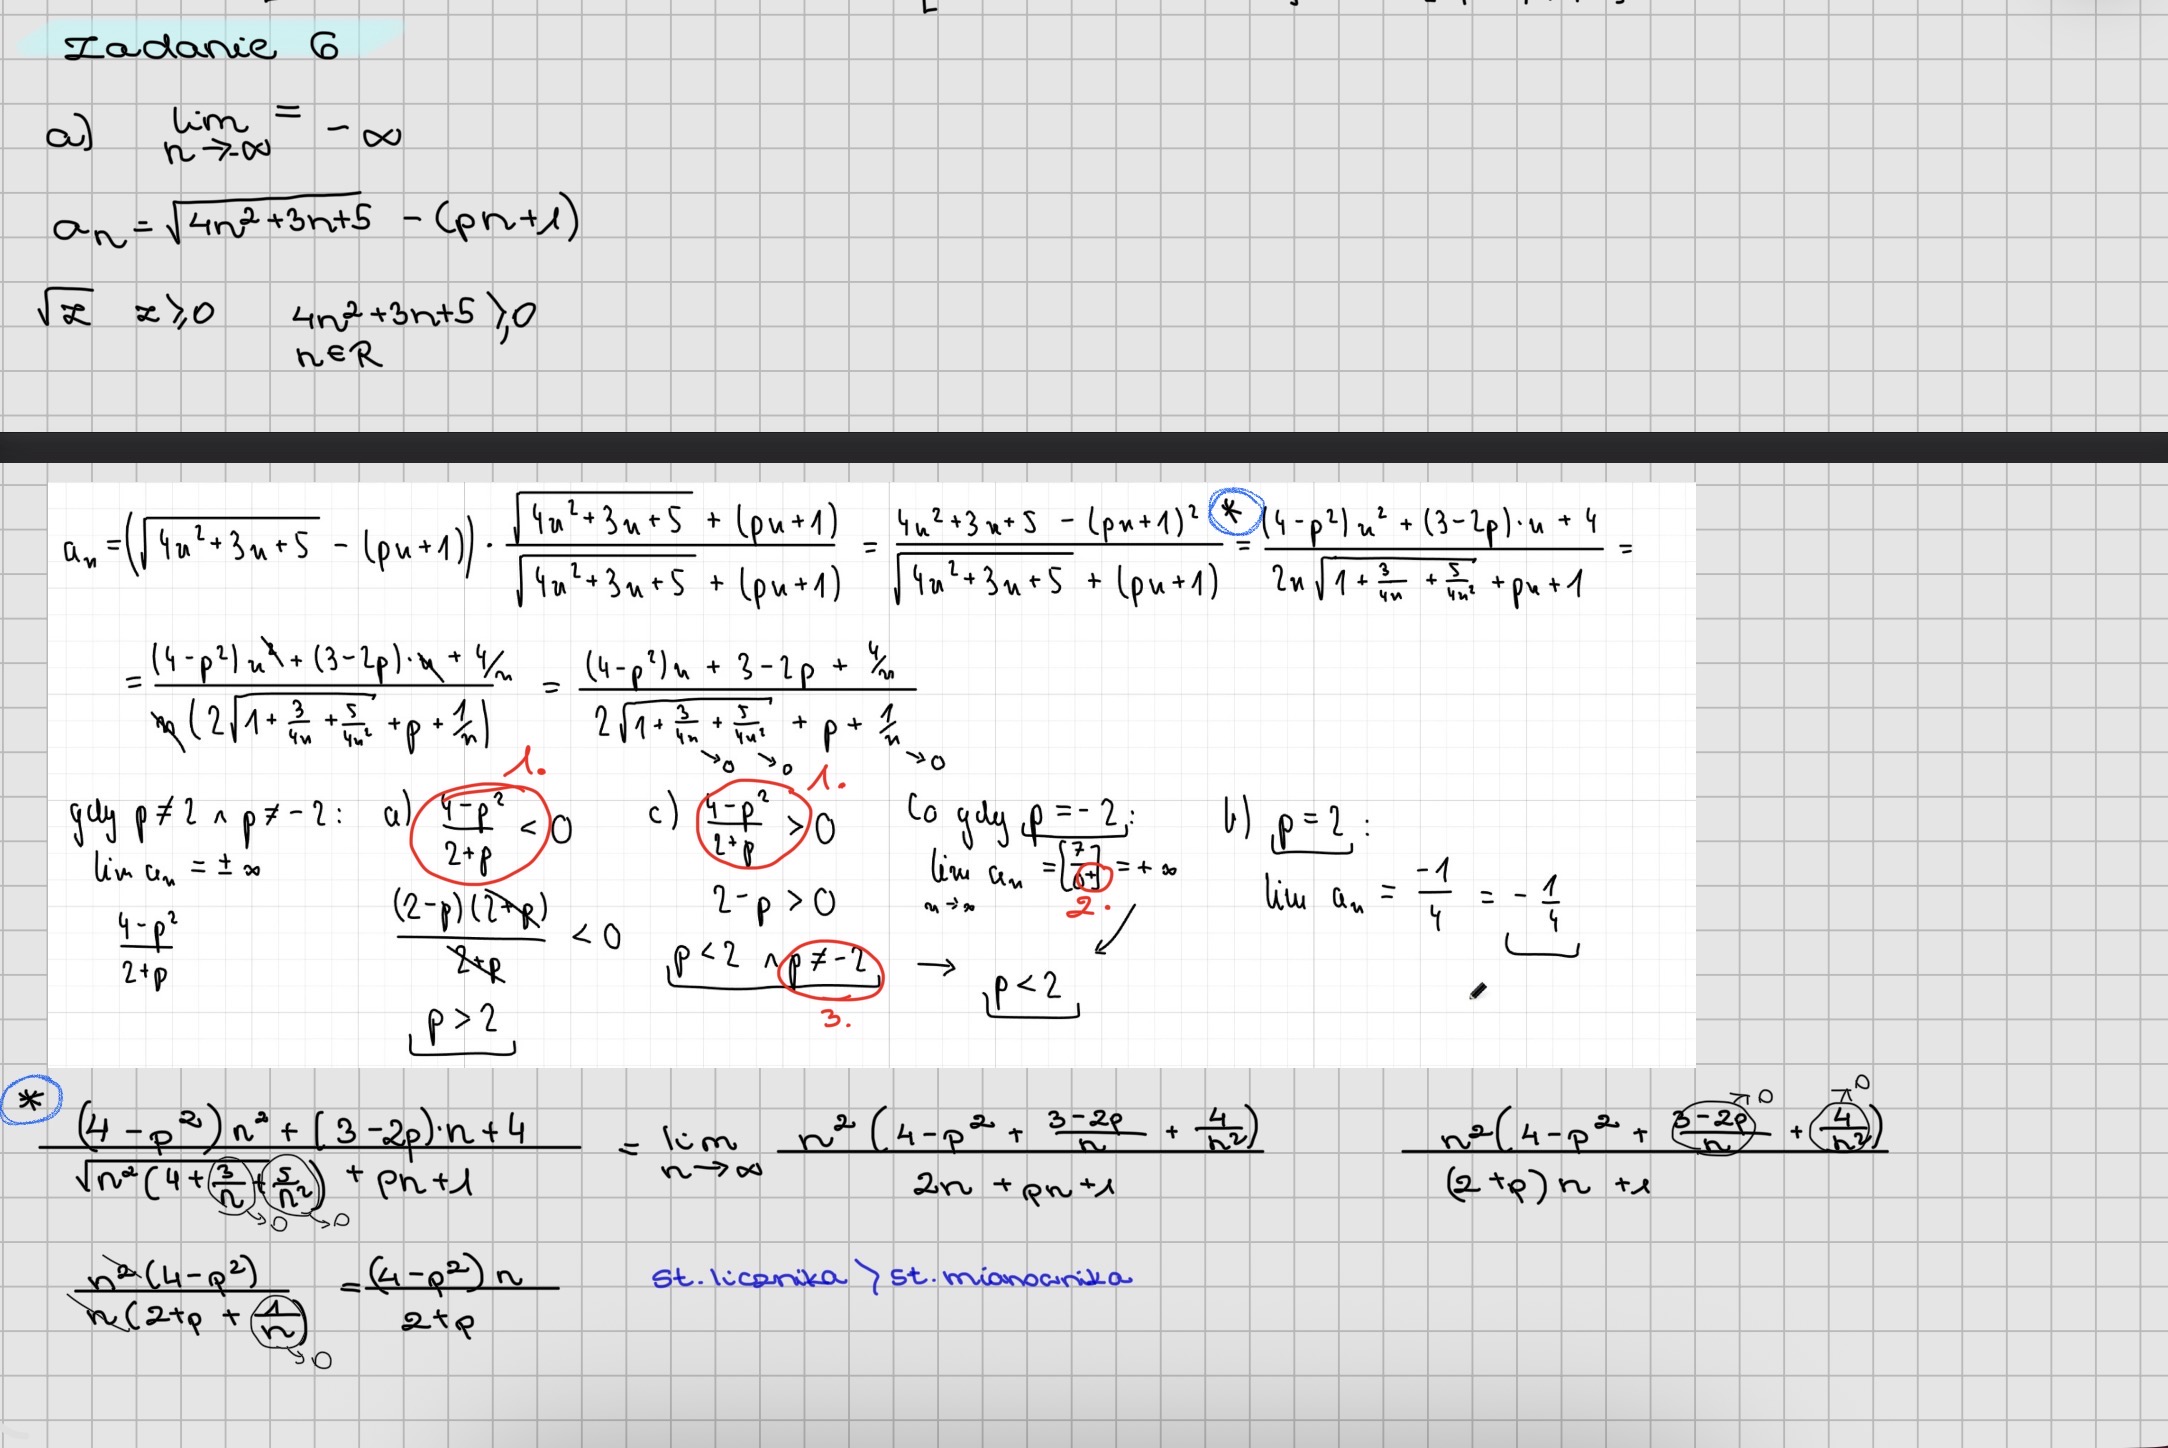 Zadanie 6
a) lim n→-∞ = -∞
aₙ = √(4n²+3n+5) - (pn+1)
√z z⩾0 4n²+3n+5 ⩾0
n∈R
aₙ = (√(4n²+3n+5) - (pn+1)) · (√(4n²+3n+5) + (pn+1))/(√(4n²+3n+5) + (pn+1)) = (4n²+3n+5 - (pn+1)²)/(√(4n²+3n+5) + (pn+1)) * = ((4-p²)n² + (3-2p)·n + 4)/(2n√(1 + 3/4n + 5/4n²) + pn + 1) =
= ((4-p²)n² + (3-2p)·n + 4/n)/(n(2√(1 + 3/4n + 5/4n²) + p + 1/n)) = ((4-p²)n + 3-2p + 4/n)/(2√(1 + 3/4n + 5/4n²) + p + 1/n)
→0 →0 →0
1. 1.
gdy p≠2 ∧ p≠-2: a) (4-p²)/(2+p) < 0 c) (4-p²)/(2+p) > 0 Co gdy p=-2: b) p=2:
lim aₙ = ±∞ lim n→∞ aₙ = [7/0⁺] = +∞ lim aₙ = -1/4 = -1/4
2.
(4-p²)/(2+p) ((2-p)(2+p))/(2+p) < 0 2-p > 0
p<2 ∧ p≠-2 → p<2
p>2 3.
* ((4-p²)n² + (3-2p)·n+4)/(√(n²(4+3/n+5/n²)) + pn+1) = lim n→∞ (n²(4-p² + (3-2p)/n + 4/n²))/(2n+pn+1) (n²(4-p² + (3-2p)/n + 4/n²))/((2+p)n+1)
→0 →0 →0 →0
(n²(4-p²))/(n(2+p+1/n)) = ((4-p²)n)/(2+p) st. licznika > st. mianownika
→0